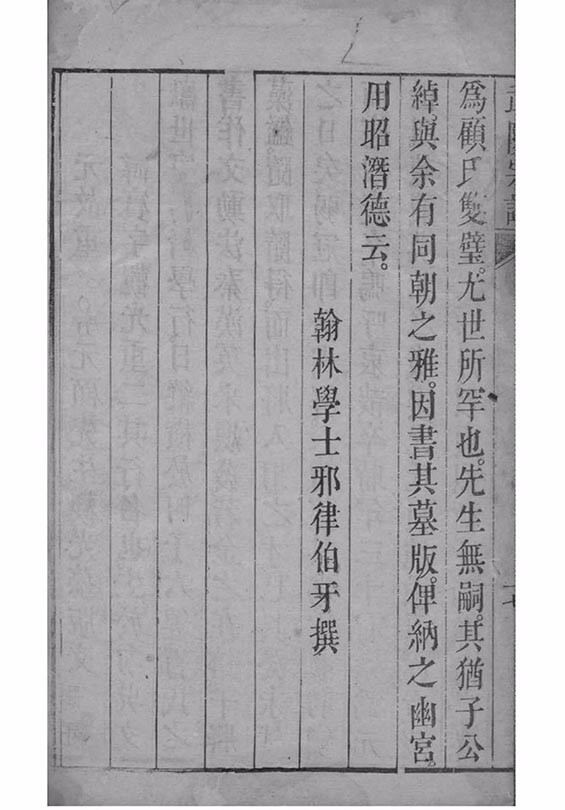 為顧氏雙璧。尤世所罕也。先生無嗣。其猶子公
綽。與余有同朝之雅。因書其墓版。俾納之幽宮。
用昭潛德云。
翰林學士邪律伯牙撰